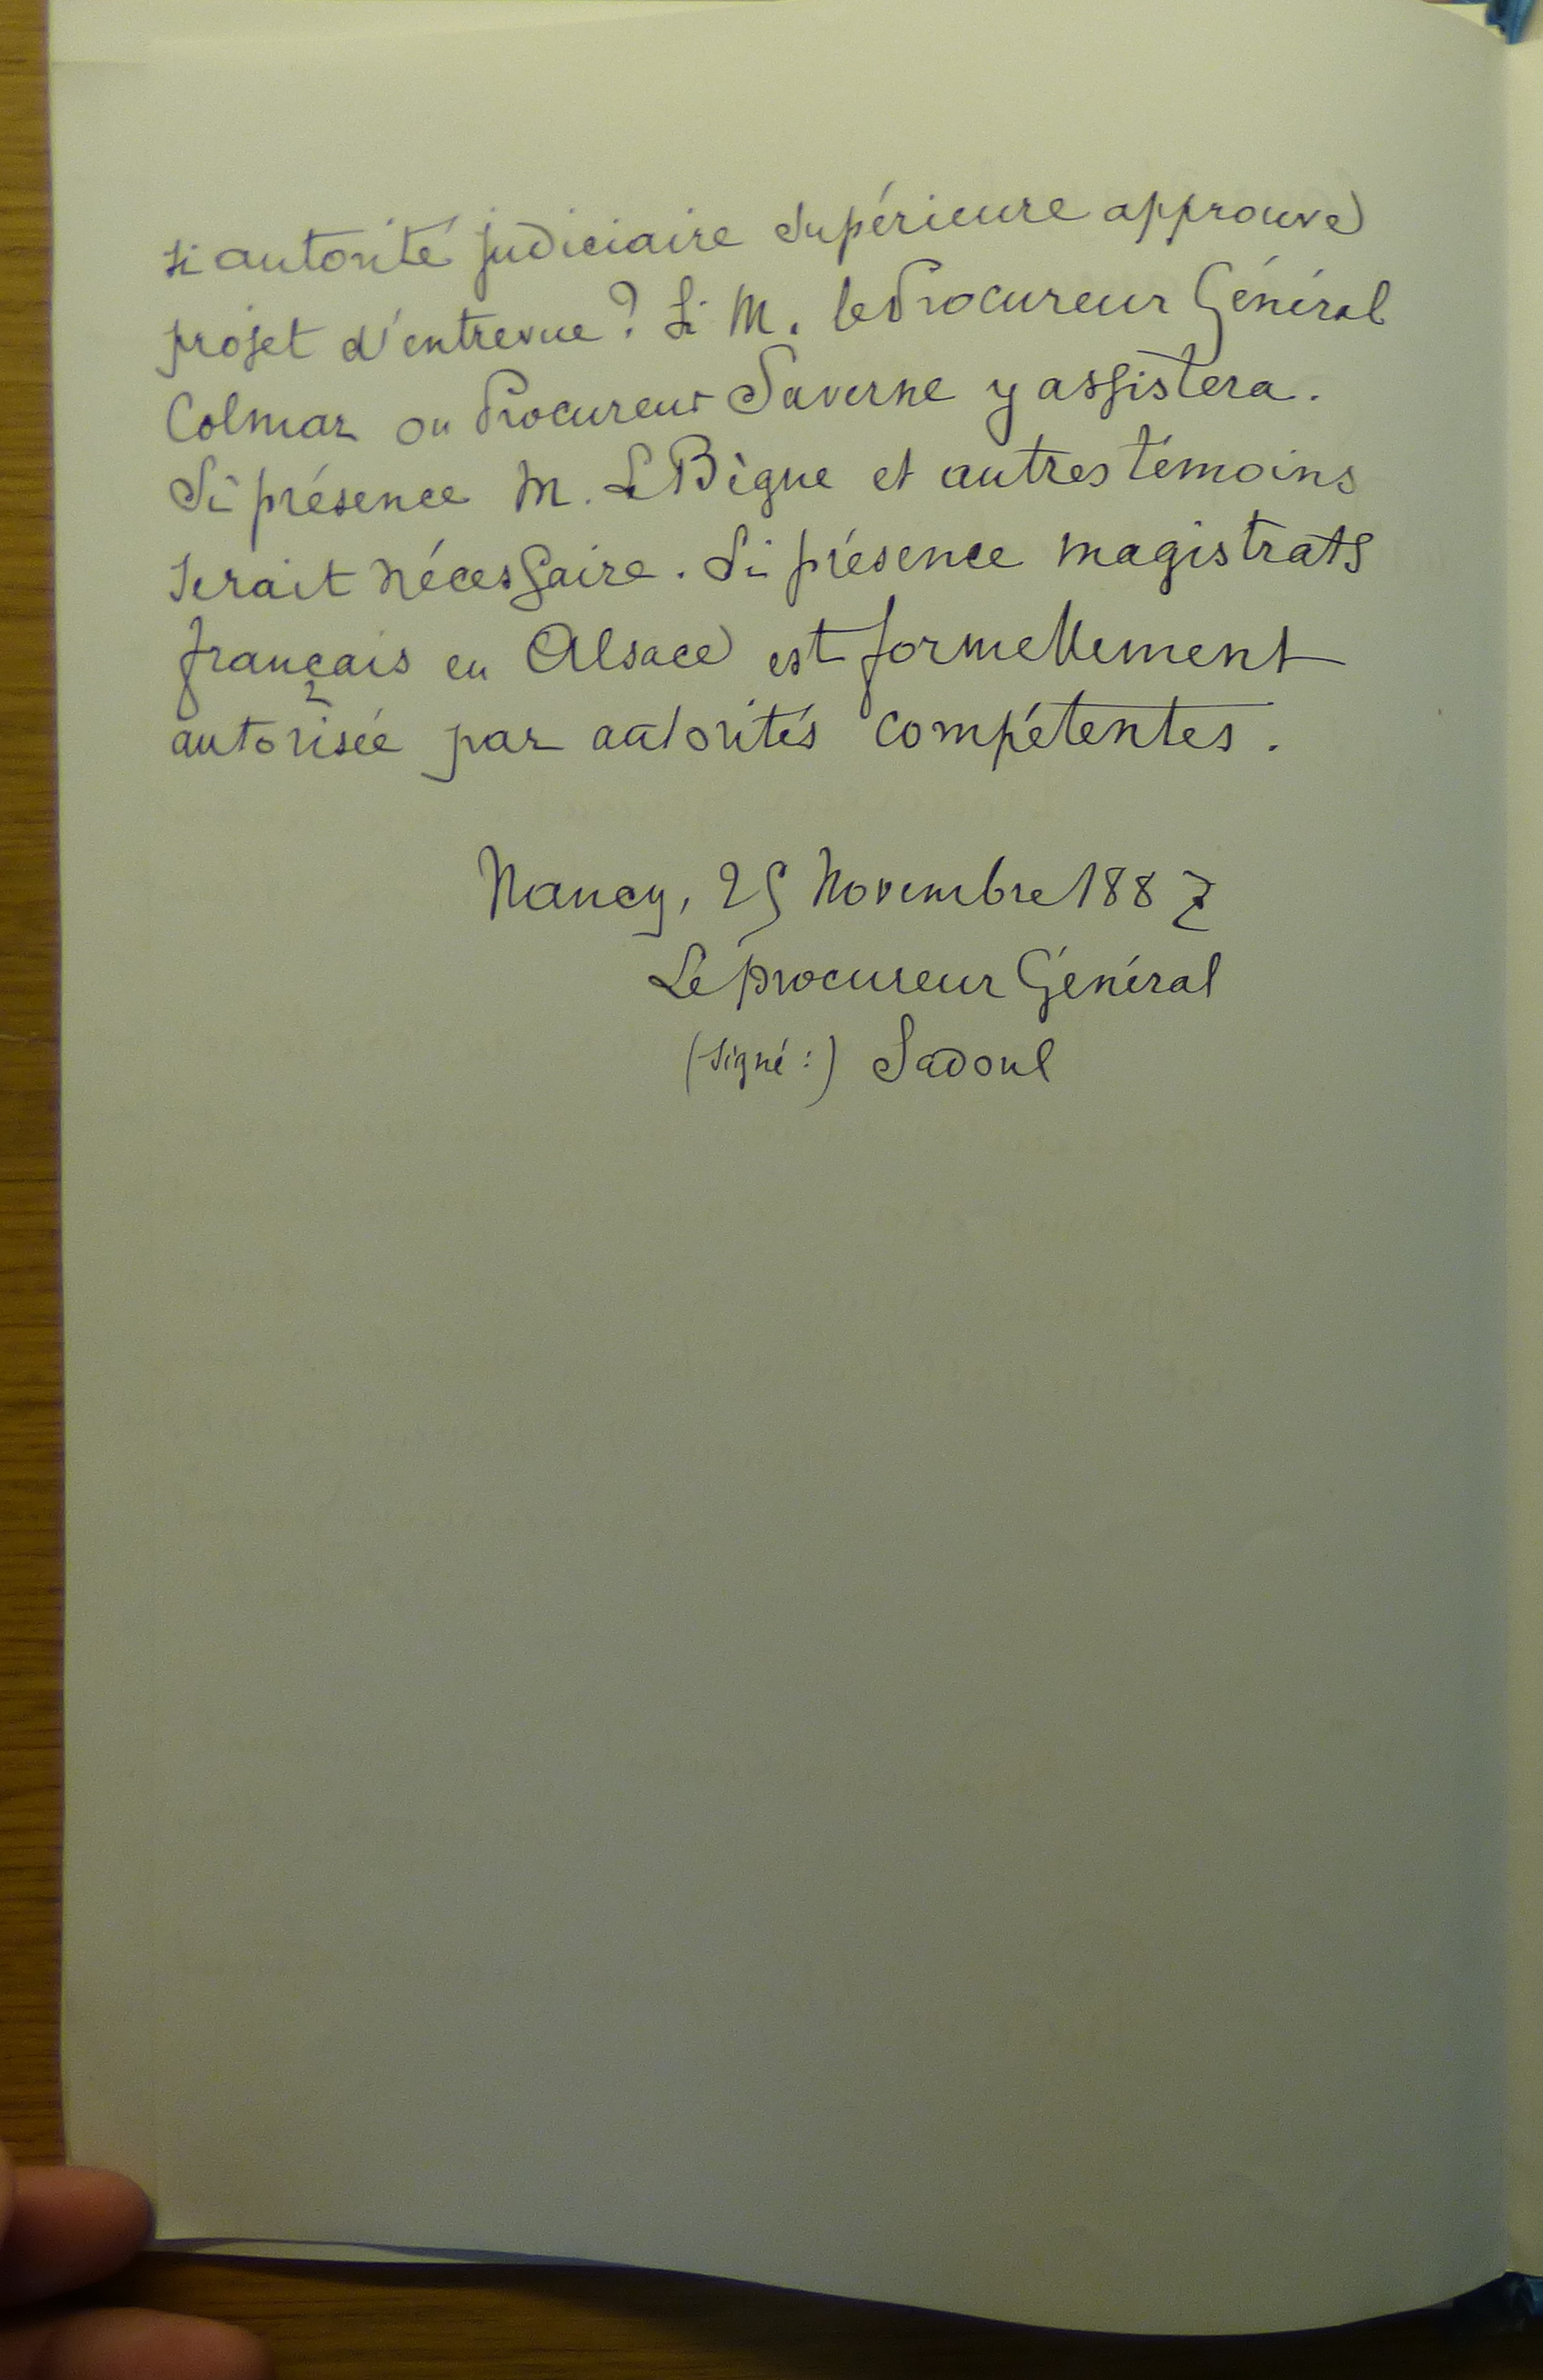 si autorité judiciaire supérieure approuve
projet d'entrevue ? Si M. le Procureur Général
Colmar ou Procureur Saverne y assistera.
Si présence M. LeBègue et autres témoins
serait nécessaire. Si présence magistrats
français en Alsace est formellement
autorisée par autorités compétentes.
Nancy, 25 Novembre 1887
Le procureur Général
(signé :) Sadoul